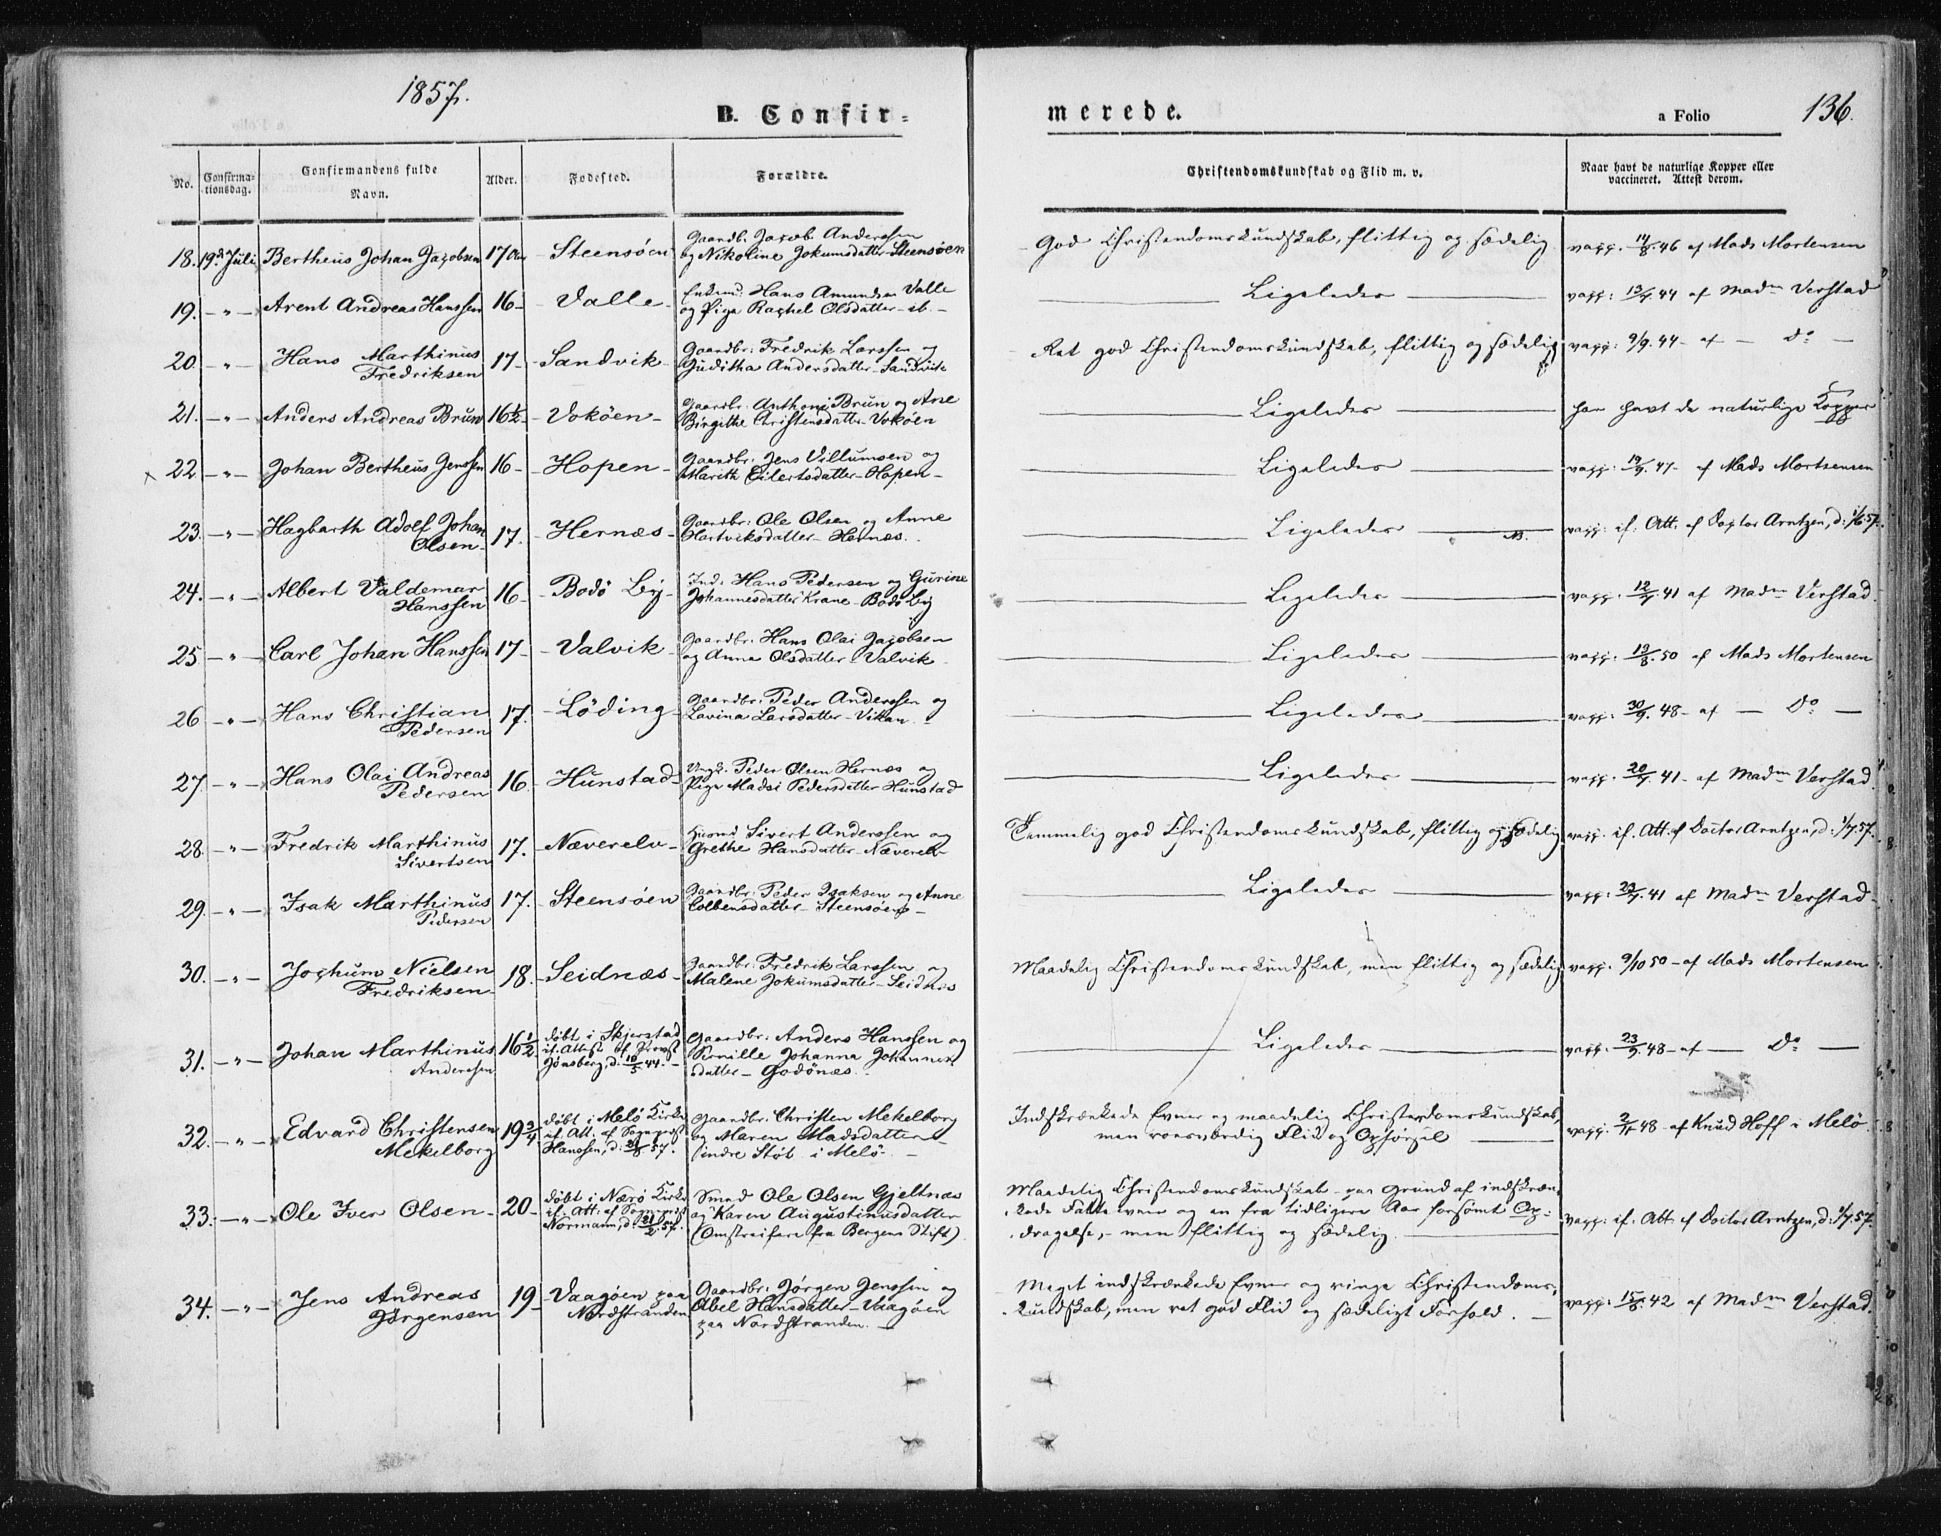 1857.
B. Confir=
merede.
a Folio
136.
No.
Confirma-
tionsdag.
Confirmandens fulde
Navn.
Alder.
Fødested.
Forældre.
Christendomskundskab og Flid m. v.
Naar havt de naturlige Kopper eller
vaccineret. Attest derom.
18. 19d Juli Bertheus Johan Jacobsen 17 Aar Steensøen Gaardb: Jacob Anderssen
og Nikoline Jokumsdatter Steensøen
God Christendomskundskab, flittig og sædelig vacc. 14/8 46 af Mads Mortensen
19. - " - Arent Andreas Hanssen 16 - Valle - Enkemd: Hans Amundsen Valle
og Pige Rachel Olsdatter - ib. -
Ligeledes vacc: 13/9 44 af Madm Verstad
20. - " - Hans Marthinus
Fredriksen 17 - Sandvik - Gaardbr: Fredrik Larssen og
Juditha Andersdatter Sandvik
Ret god Christendomskundskab, flittig og sædelig vacc: 9/9. 44 - af - Do -
21. - " - Anders Andreas Brun 16 1/2 - Vokøen - Gaardbr: Anthoni Brun og Ane
Birgithe Christensdatter Vokøen
Ligeledes har havt de naturlige Kopper
22 - " - Johan Bertheus Jenssen 16 - Hopen - Gaardbr: Jens Villumsen og
Marith Eilertsdatter Hopen -
Ligeledes vacc: 19/9. 47 - af Mads Mortensen
23. - " - Hagbarth Adolf Johan
Olsen - 17. - Hernæs - Gaardbr: Ole Olsen og Anne
Hartviksdatter - Hernæs.
Ligeledes vacc: if. Att. af Doctor Arntzen, d: 1/6 57.
24. - " - Albert Valdemar
Hanssen 16 - Bodø By - Ind: Hans Pedersen og Gurine
Johannesdatter Krane Bodø By
Ligeledes vacc: 12/9. 41 af Madm Verstad
25 - " - Carl Johan Hanssen 17 - Valvik - Gaardbr: Hans Olai Jacobsen
og Anna Olsdatter Valvik
Ligeledes vacc: 19/8. 50 af Mads Mortensen
26 - " - Hans Christian
Pedersen 17. - Löding - Gaardbr: Peder Anderssen og
Lavina Larsdatter - Vikan
Ligeledes vacc: 30/9. 48 - af - Do -
27 - " - Hans Olai Andreas
Pedersen 16. Hunstad - Ungk. Peder Olsen Hernæs og
Pige Madsi Pedersdatter Hunstad
Ligeledes vacc: 20/9. 41 - af Madm Verstad
28. - " - Fredrik Marthinus
Sivertsen 17. - Næverelv - Huusmd Sivert Anderssen og
Grethe Hansdatter Næverelv
Temmelig god Christendomskundskab, flittig og sædelig vacc. if. Att. af Doctor Arntzen, d: 1/7. 57.
29. - " - Isak Marthinus
Pedersen 17. - Steensøen Gaardbr: Peder Isaksen og Anne
Colbensdatter - Steensøen -
Ligeledes vacc: 23/9. 41 af Madm Verstad
30. - " - Jochum Nielsen
Fredriksen - 18. - Seidnæs - Gaardbr: Fredrik Larssen og
Malene Jokumsdatter - Seidnæs
Maadelig Christendomskundskab, men flittig og sædelig vacc: 9/10 50 - af Mads Mortensen
31. - " - Johan Marthinus
Anderssen 16 1/2 døbt i Skjerstad
if. Attest af Provst
Jönsberg, d: 10/5 44. - Gaardbr: Anders Hanssen og
Pernille Johanna Johannes
datter - Godönæs.
Ligeledes vacc: 23/9. 48 - af - Do -
32. - " - Edvard Christensen
Mekelborg 19 3/4 døbt i Melö Kirke
if. Att. af Sognepræst
Hanssen, d: 57. Gaardbr. Christen Mekelborg
og Maren Madsdatter
indre Stöt i Melö -
Indskrænkede Evner og maadelig Christendomskundskab,
men roesværdig Flid og Opförsel vacc. 48 - af Knud Hoff i Melö.
33. - " - Ole Iver Olsen - 20 - døbt i Nærö Kirke
if. Att. af Sognepræst
Normann, d: 57. Smed Ole Olsen Gjeltnæs
og Karen Augustinusdatter
(Omstreifere fra Bergens Stift)
Maadelig Christendomskundskab - paa Grund af indskræn-
kede Fatteevner og en fra tidligere Aar forsömt Op-
dragelse, - men flittig og sædelig. vacc: if. Att. af Doctor Arntzen, d: 1/7. 57.
34. - " - Jens Andreas
Jørgensen 19 - Vaagøen paa
Nordstranden Gaardbr: Jørgen Jenssen og
Abel Hansdatter - Vaagøen
paa Nordstranden. -
Meget indskrænkede Evner og ringe Christendoms-
kundskab, men ret god Flid og sædeligt Forhold. - vacc: 15/8. 42 af Madm Verstad.